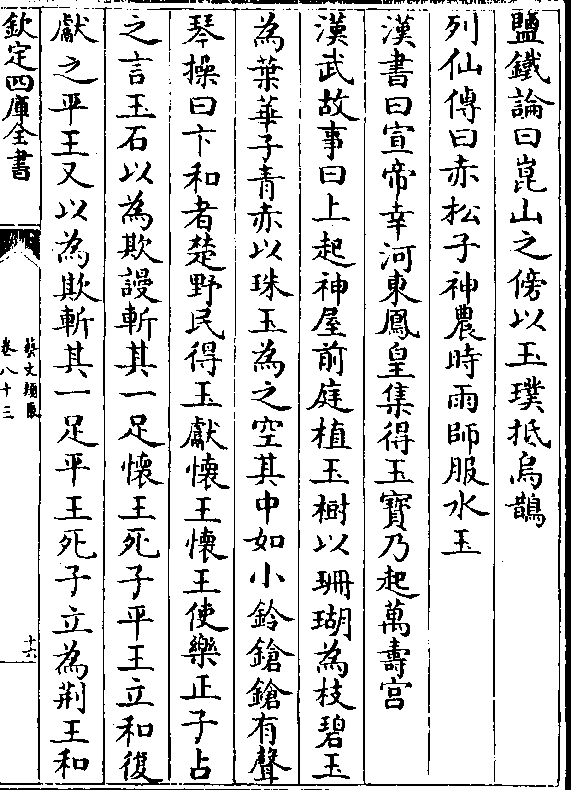 鹽鐵論曰崑山之傍以玉璞抵烏鵲
列仙傳曰赤松子神農時雨師服水玉
漢書曰宣帝幸河東鳳皇集得玉寶乃起萬壽宮
漢武故事曰上起神屋前庭植玉樹以珊瑚為枝碧玉
為葉華子青赤以珠玉為之空其中如小鈴鎗鎗有聲
琴操曰卞和者楚野民得玉獻懷王懷王使樂正子占
之言玉石以為欺謾斬其一足懷王死子平王立和復
獻之平王又以為欺斬其一足平王死子立為荆王和
欽定四庫全書
藝文類聚
卷八十三
十六